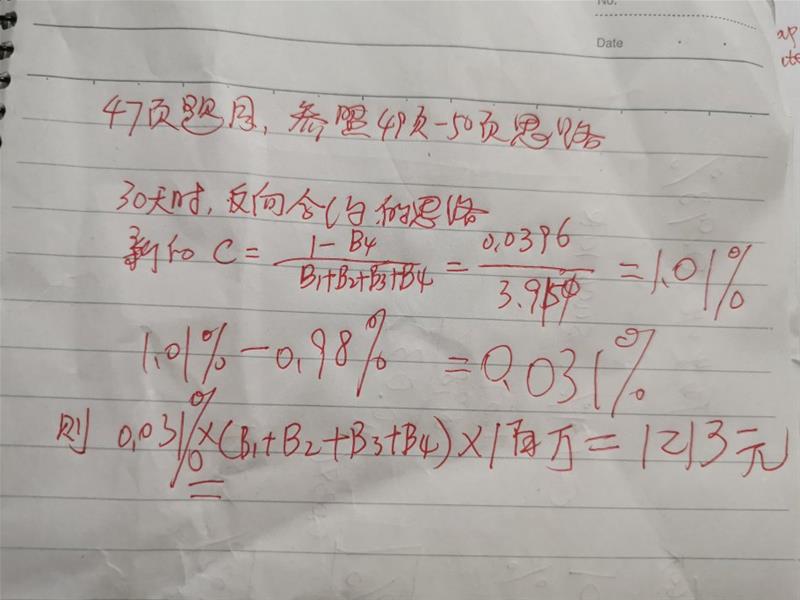 No.
Date
47页题目，参照49页-50页思路
30天时，反向合约的思路
新的 C = (1-B4)/(B1+B2+B3+B4) = 0.0396/3.954 = 1.01%
1.01%-0.98% =0.031%
则 0.031%×(B1+B2+B3+B4)×1百万=1213元